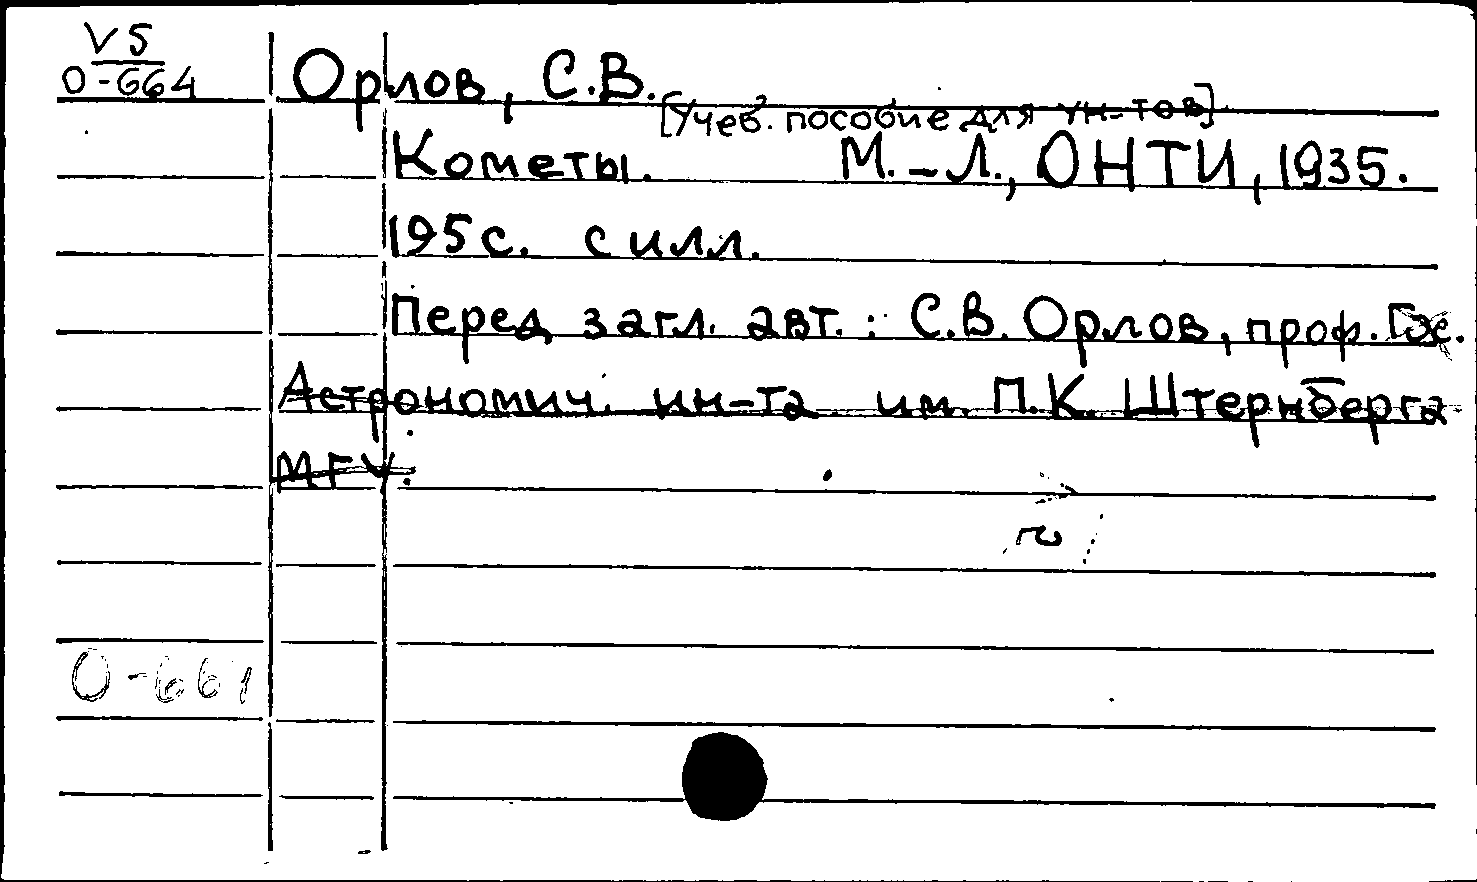 V5
О-664
Орлов, С.В.
[Учеб. пособие для ун-тов]
Кометы. М.-Л., ОНТИ, 1935.
195с. с илл.
Перед загл. авт.: С.В. Орлов, проф. Гос.
Астрономич. ин-та им. П.К. Штернберга
МГУ.
О-661